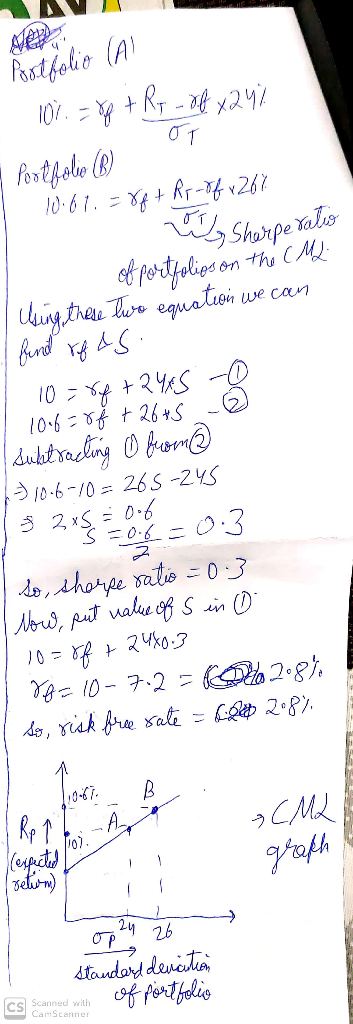 Portfolio (A)
10% = rf + RT - rf / σT x 24%
Portfolio (B)
10.6%. = rf + RT - rf / σT x 26%
Sharpe ratio
of portfolios on the CML.
Using these two equation we can
find rf & S.
10 = rf + 24xS - ①
10.6 = rf + 26*S - ②
Subtracting ① from ②
⇒ 10.6 - 10 = 26S - 24S
⇒ 2xS = 0.6
S = 0.6 / 2 = 0.3
So, sharpe ratio = 0.3
Now, put value of S in ①
10 = rf + 24x0.3
rf = 10 - 7.2 = 2.8%
So, risk free rate = 2.8%.
10.6%
B
Rp ↑
10%
A
→ CML
(expected
graph
return)
σp
24
26
standard deviation
of portfolio
CS
Scanned with
CamScanner